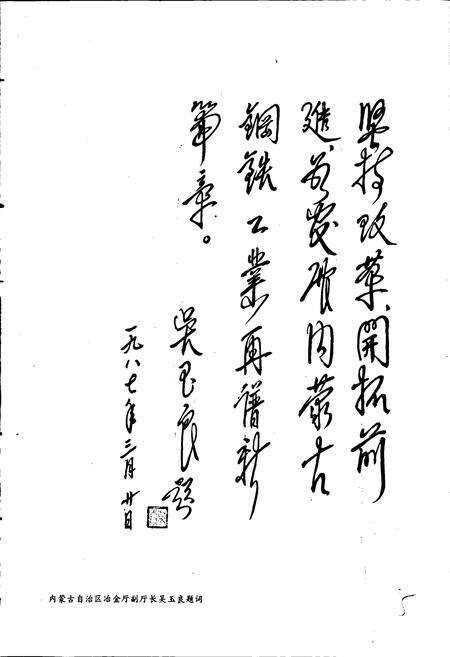 坚持改革、開拓前
進,為發展内蒙古
鋼鉄工業再譜新
篇章。
吴玉良题
一九八七年三月廿日
内蒙古自治区冶金厅副厅长吴玉良题词
5